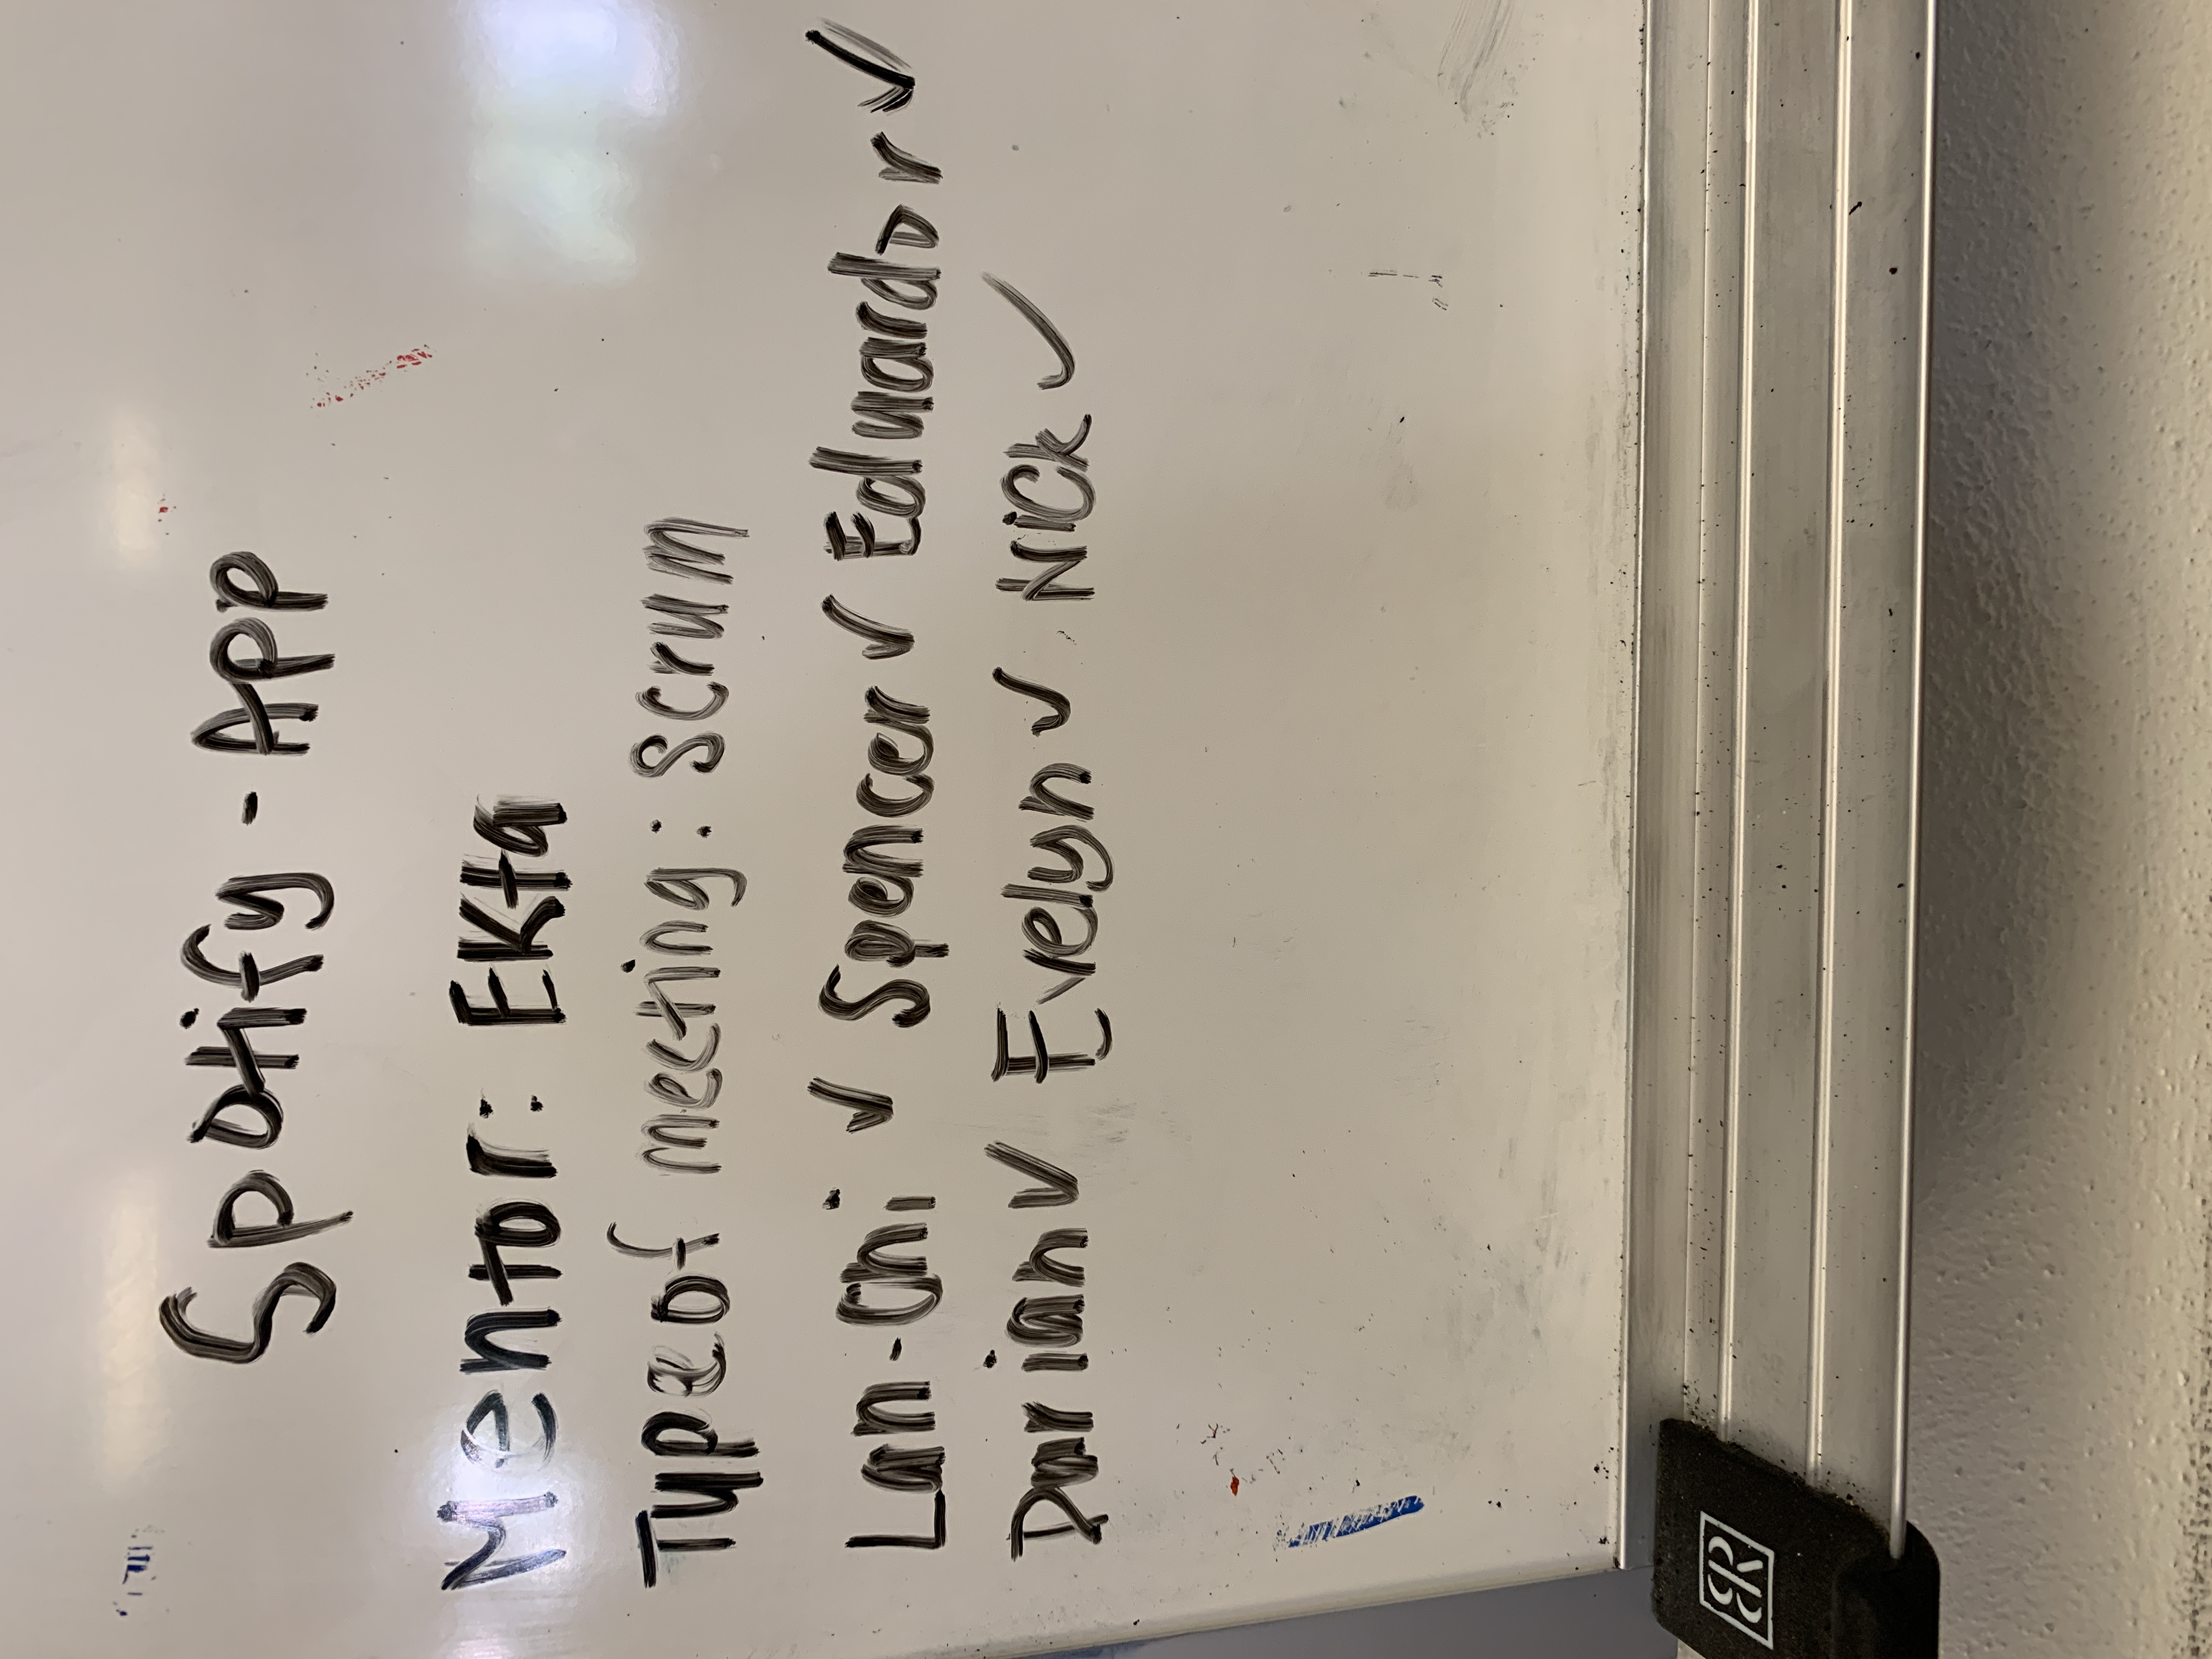 Spotify - App
Mentor: Ekta
Type of meeting: scrum
Lan-Chi ✓ Spencer ✓ Eduardor ✓
Darian ✓ Evelyn ✓ Nick ✓